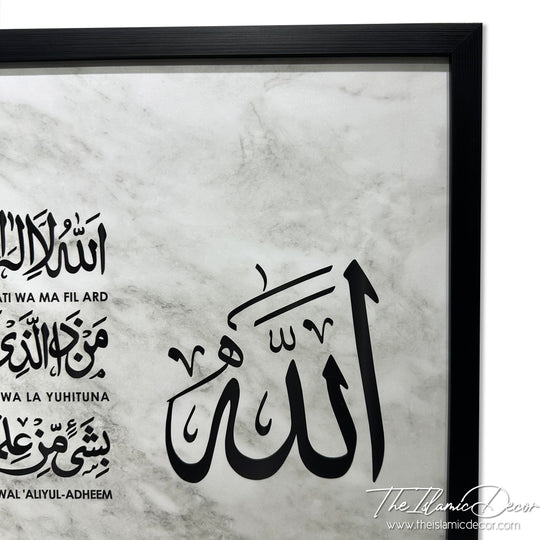 اللَّهُ لَا إِلَٰهَ
ATI WA MA FIL ARD
مَن ذَا الَّذِي
WA LA YUHITUNA
بِشَيْءٍ مِّنْ عِلْمِ
WAL 'ALIYUL-ADHEEM
اللّٰه
The Islamic Decor
www.theislamicdecor.com